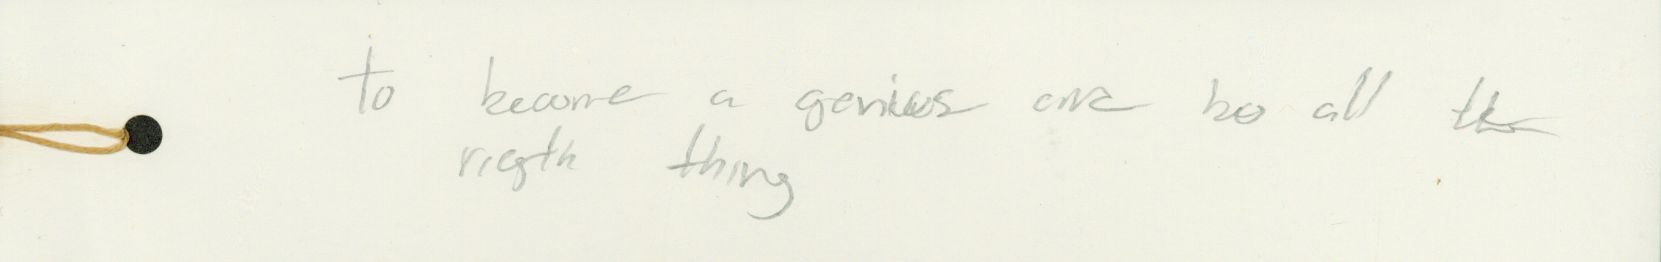 to become a genius and do all the
rigth thing